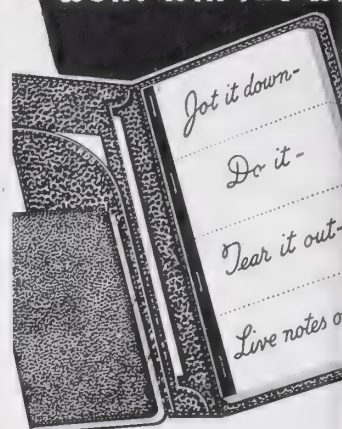 Jot it down-
Do it-
Tear it out-
Live notes